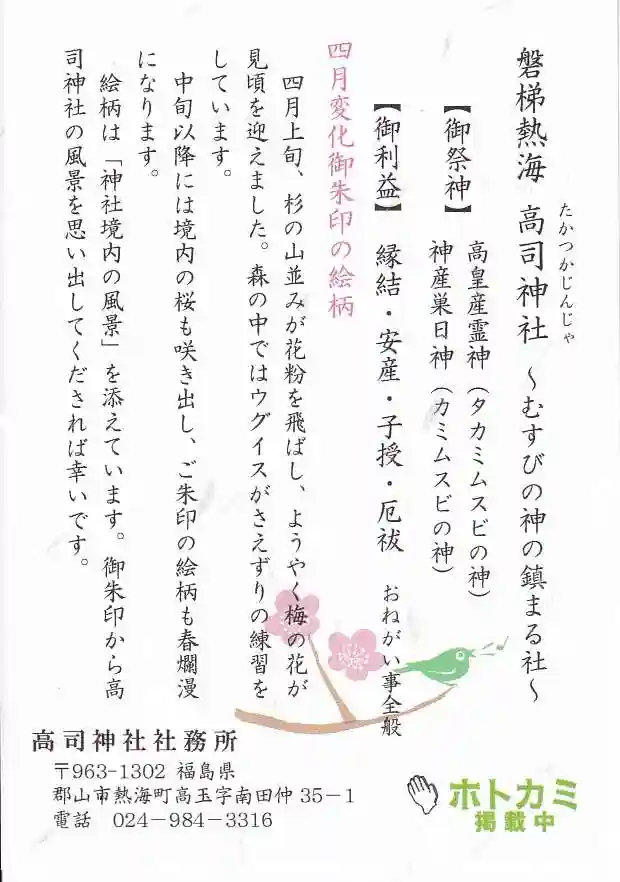 磐梯熱海 高司神社 ~むすびの神の鎮まる社~
たかつかじんじゃ
【御祭神】 高皇産霊神(タカミムスビの神)
神産巣日神(カミムスビの神)
【御利益】 縁結・安産・子授・厄祓 おねがい事全般
四月変化御朱印の絵柄
四月上旬、杉の山並みが花粉を飛ばし、ようやく梅の花が
見頃を迎えました。森の中ではウグイスがさえずりの練習を
しています。
中旬以降には境内の桜も咲き出し、ご朱印の絵柄も春爛漫
になります。
絵柄は「神社境内の風景」を添えています。御朱印から高
司神社の風景を思い出してくだされば幸いです。
高司神社社務所
〒963-1302 福島県
郡山市熱海町高玉字南田仲35-1
電話 024-984-3316
ホトカミ
掲載中